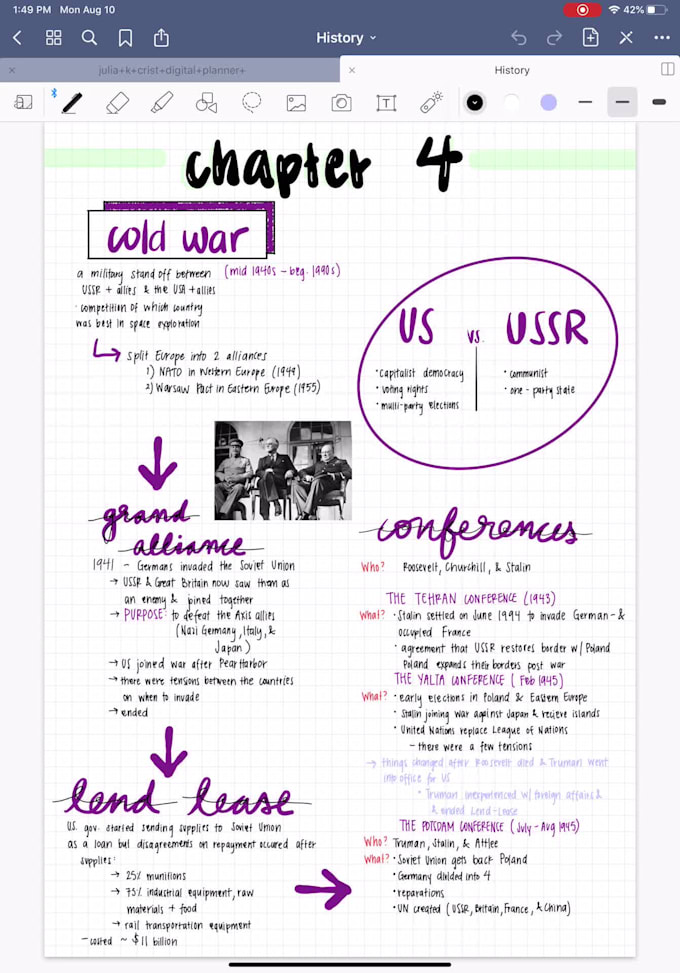 1:49 PM Mon Aug 10
42%
History
julia+k+crist+digital+planner+
History
chapter 4
cold war
a military stand off between (mid 1940s - beg. 1990s)
USSR + allies & the USA + allies
· competition of which country
was best in space exploration
split Europe into 2 alliances
1) NATO in Western Europe (1949)
2) Warsaw Pact in Eastern Europe (1955)
US vs. USSR
· capitalist democracy
· voting rights
· multi-party elections
· communist
· one-party state
grand
alliance
1941 - Germans invaded the Soviet Union
→ USSR & Great Britain now saw them as
an enemy & joined together
→ PURPOSE: to defeat the Axis allies
(Nazi Germany, Italy, &
Japan)
→ US joined war after Pear Harbor
→ there were tensions between the countries
on when to invade
→ ended
lend lease
U.S. gov. started sending supplies to Soviet Union
as a loan but disagreements on repayment occured after
supplies:
→ 25% munitions
→ 75% industrial equipment, raw
materials + food
→ rail transportation equipment
- costed ~ $11 billion
conferences
Who? Roosevelt, Churchill, & Stalin
THE TEHRAN CONFERENCE (1943)
What? · Stalin settled on June 1944 to invade German-&
occupied France
· agreement that USSR restores border w/ Poland
Poland expands their borders post war
THE YALTA CONFERENCE (Feb 1945)
What? · early elections in Poland & Eastern Europe
· Stalin joining war against Japan & recieve islands
· United Nations replace League of Nations
- there were a few tensions
→ things changed after Roosevelt died & Truman went
into office for US
· Truman inexperienced w/ foreign affairs &
& ended Lend-Lease
THE POTSDAM CONFERENCE (July - Aug 1945)
Who? Truman, Stalin, & Attlee
What? · Soviet Union gets back Poland
· Germany divided into 4
· reparations
· UN created (USSR, Britain, France, & China)